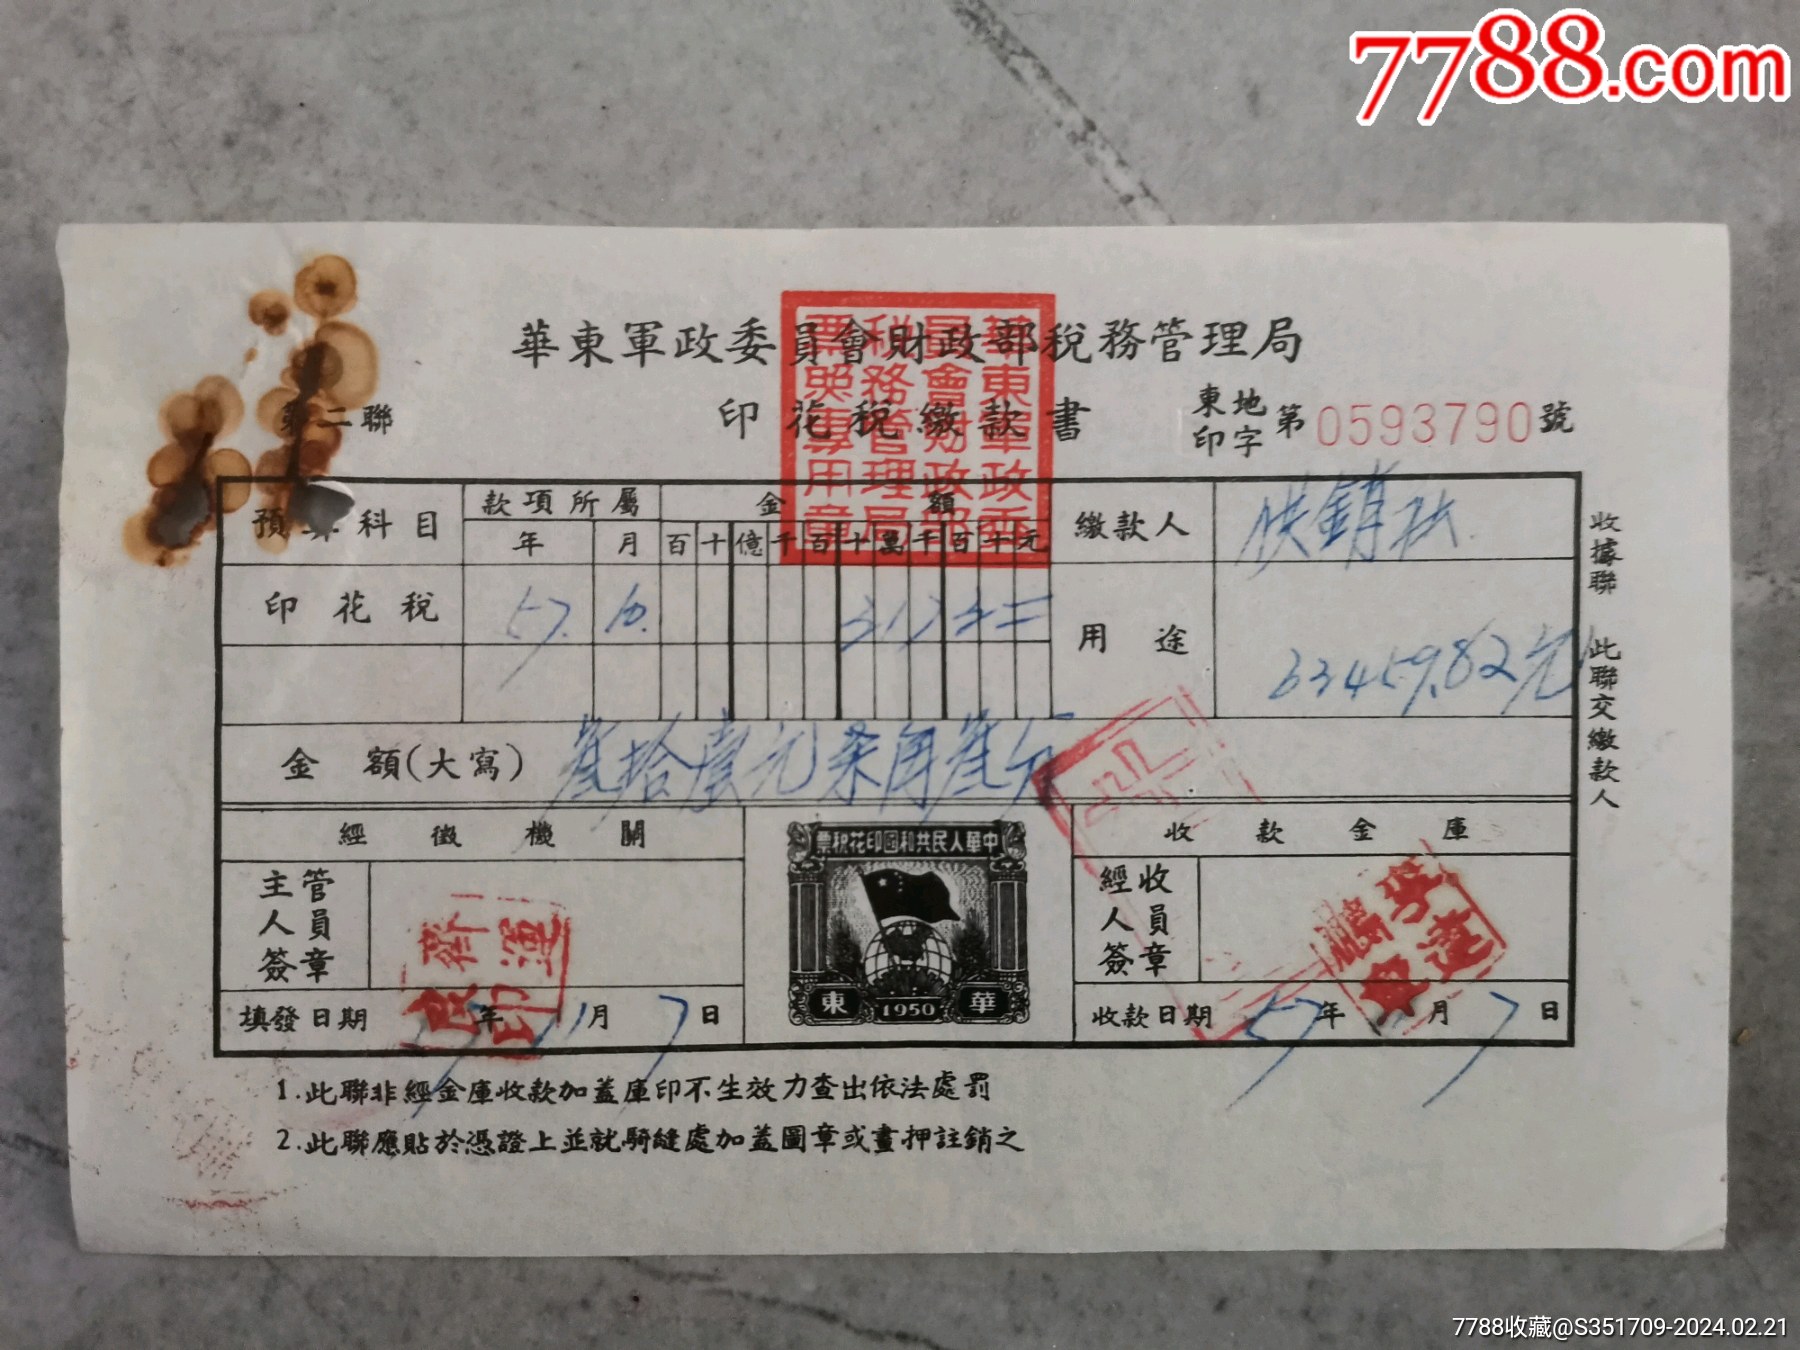 7788.com
華東軍政委員會財政部稅務管理局
第二聯
印花稅繳款書
東地印字第0593790號
預算科目
款項所屬
年 月
金額
百十億千百十萬千百十元
繳款人
供銷社
印花稅
57. 10.
用途
63459.82元
金額(大寫)
叁拾壹元柒角叁分
經徵機關
收款金庫
主管人員簽章
經收人員簽章
填發日期 57年11月7日
收款日期 57年 月7日
中華人民共和國印花稅票
華東
1950
華東軍政委員會財政部稅務管理局票照專用章
收據聯 此聯交繳款人
1.此聯非經金庫收款加蓋庫印不生效力查出依法處罰
2.此聯應貼於憑證上並就騎縫處加蓋圖章或畫押註銷之
7788收藏@S351709-2024.02.21